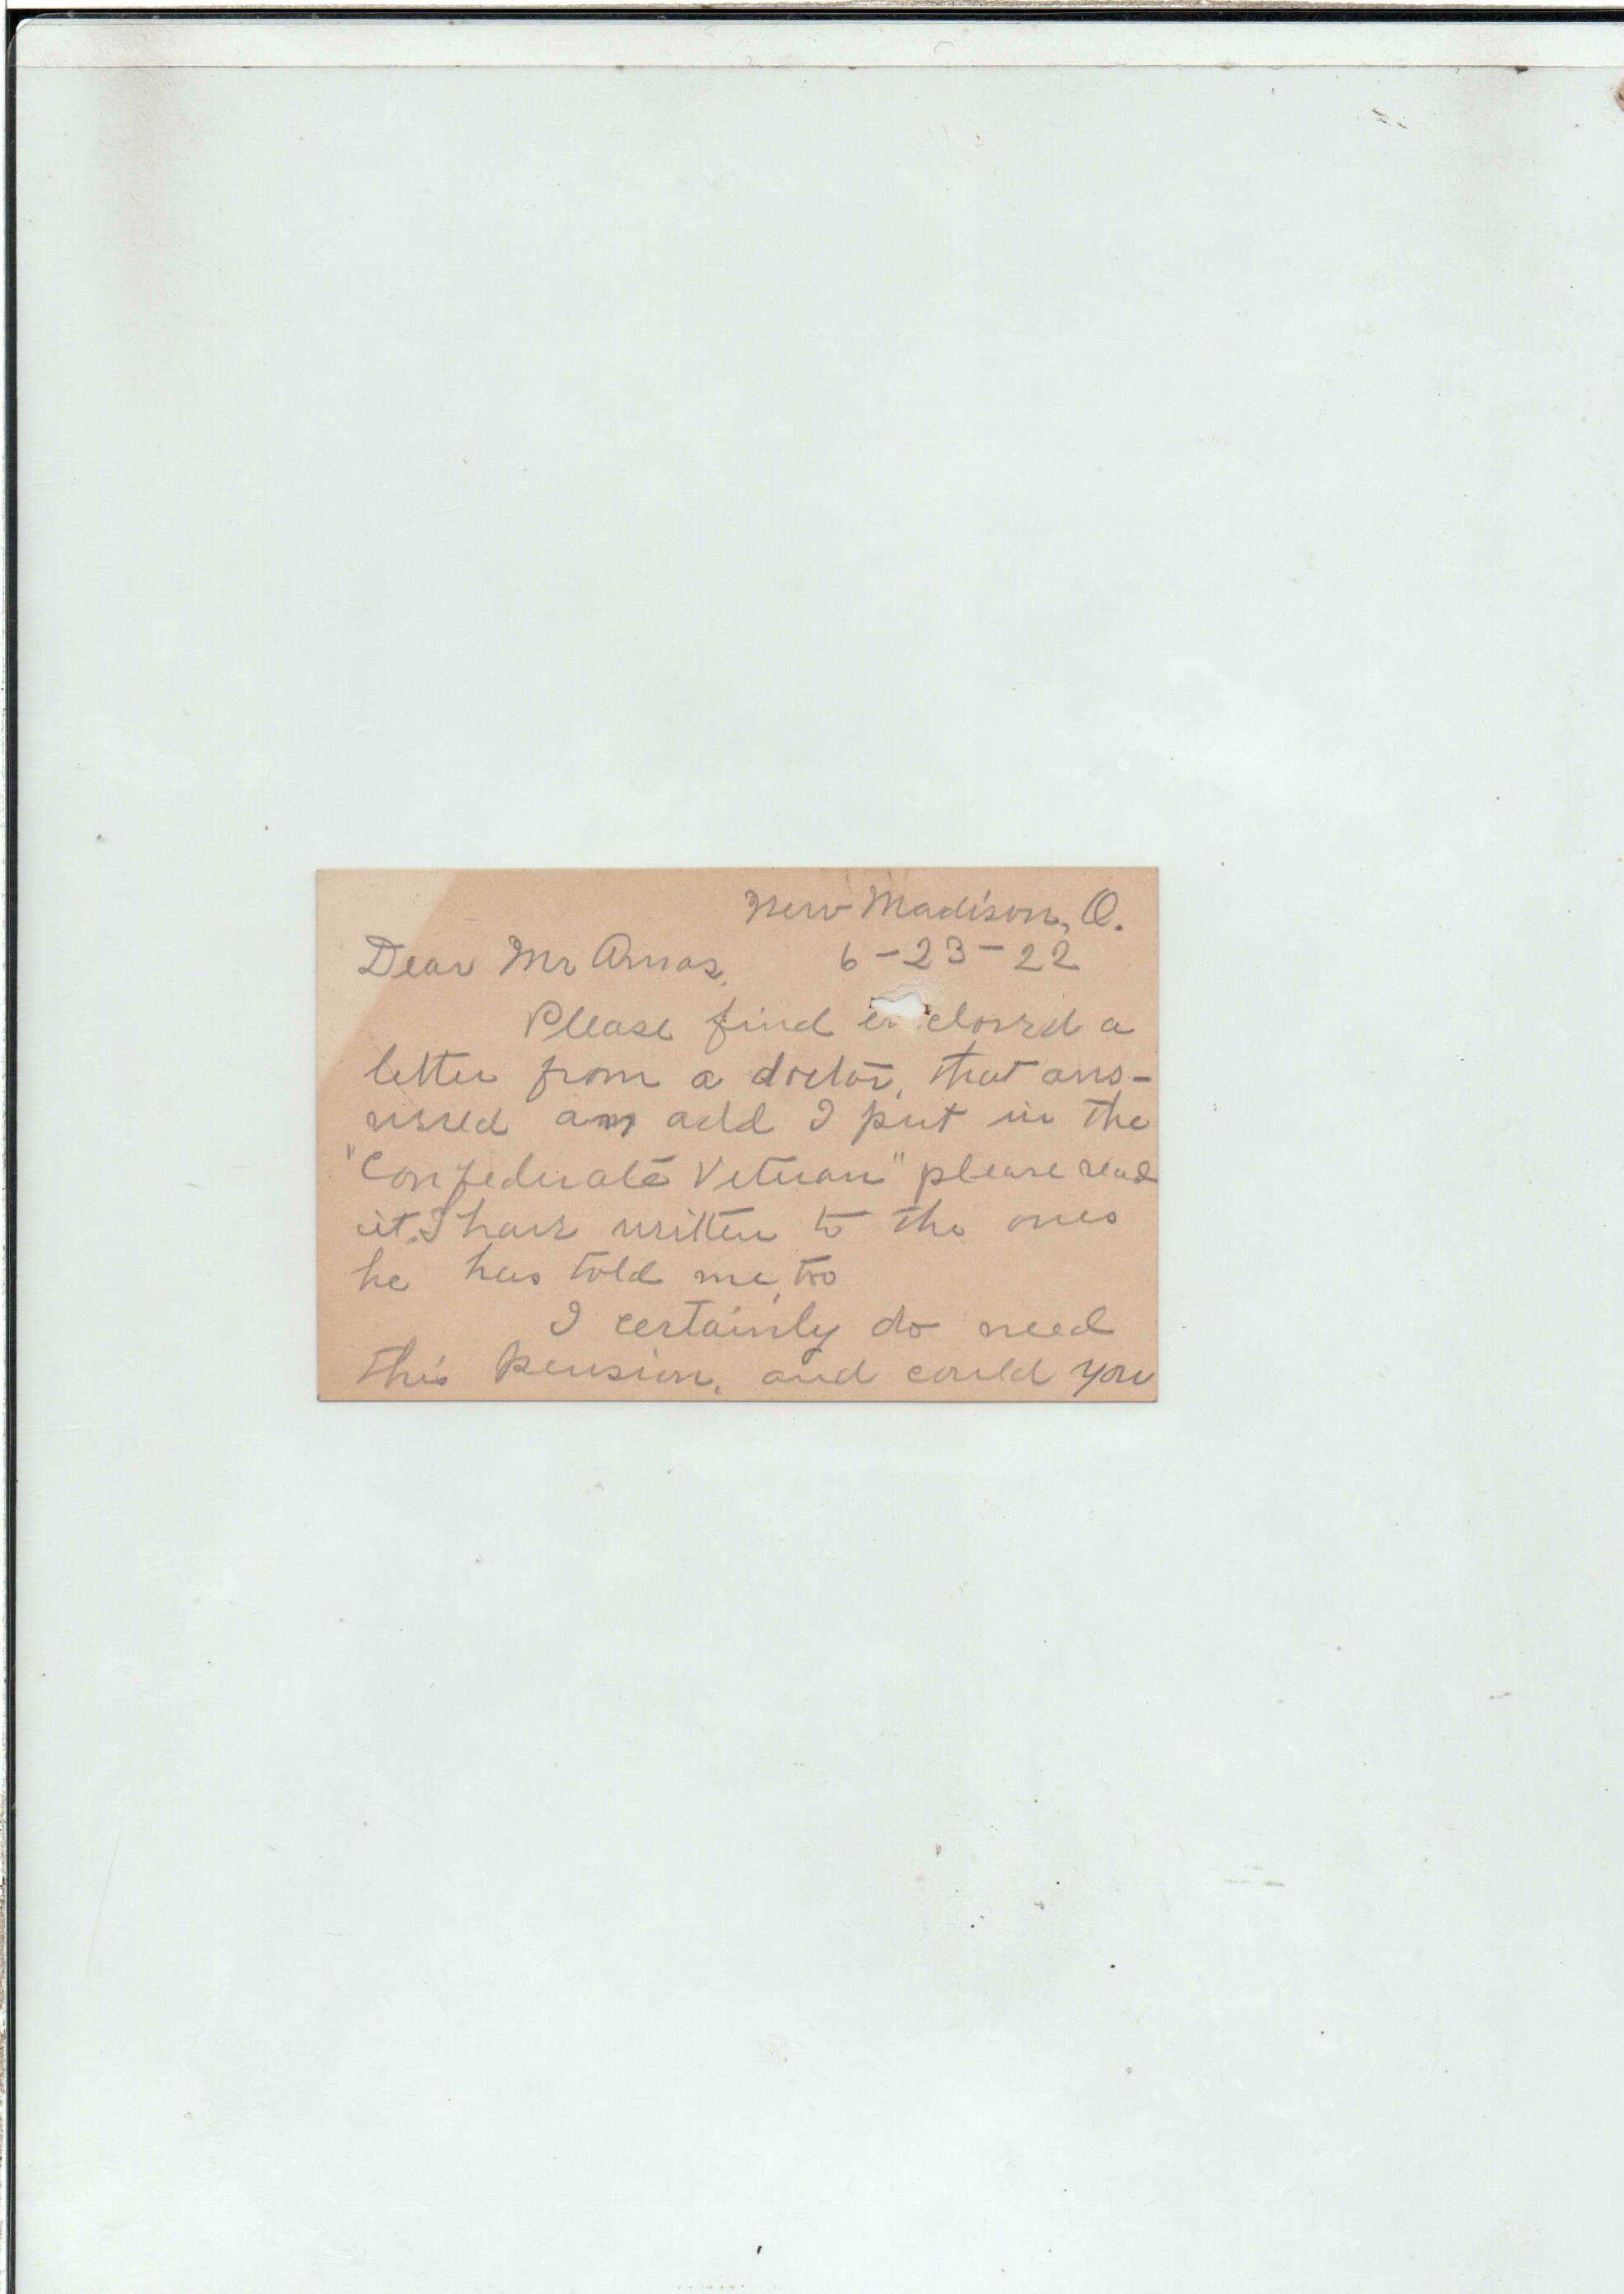 New Madison, O.
Dear Mr 6-23-22
Please find enclosed a
letter from a doctor, that ans-
wered am add I put in the
"Confederate Veteran" please read
it. I have written to the ones
he has told me, too
I certainly do need
this Pension, and could you